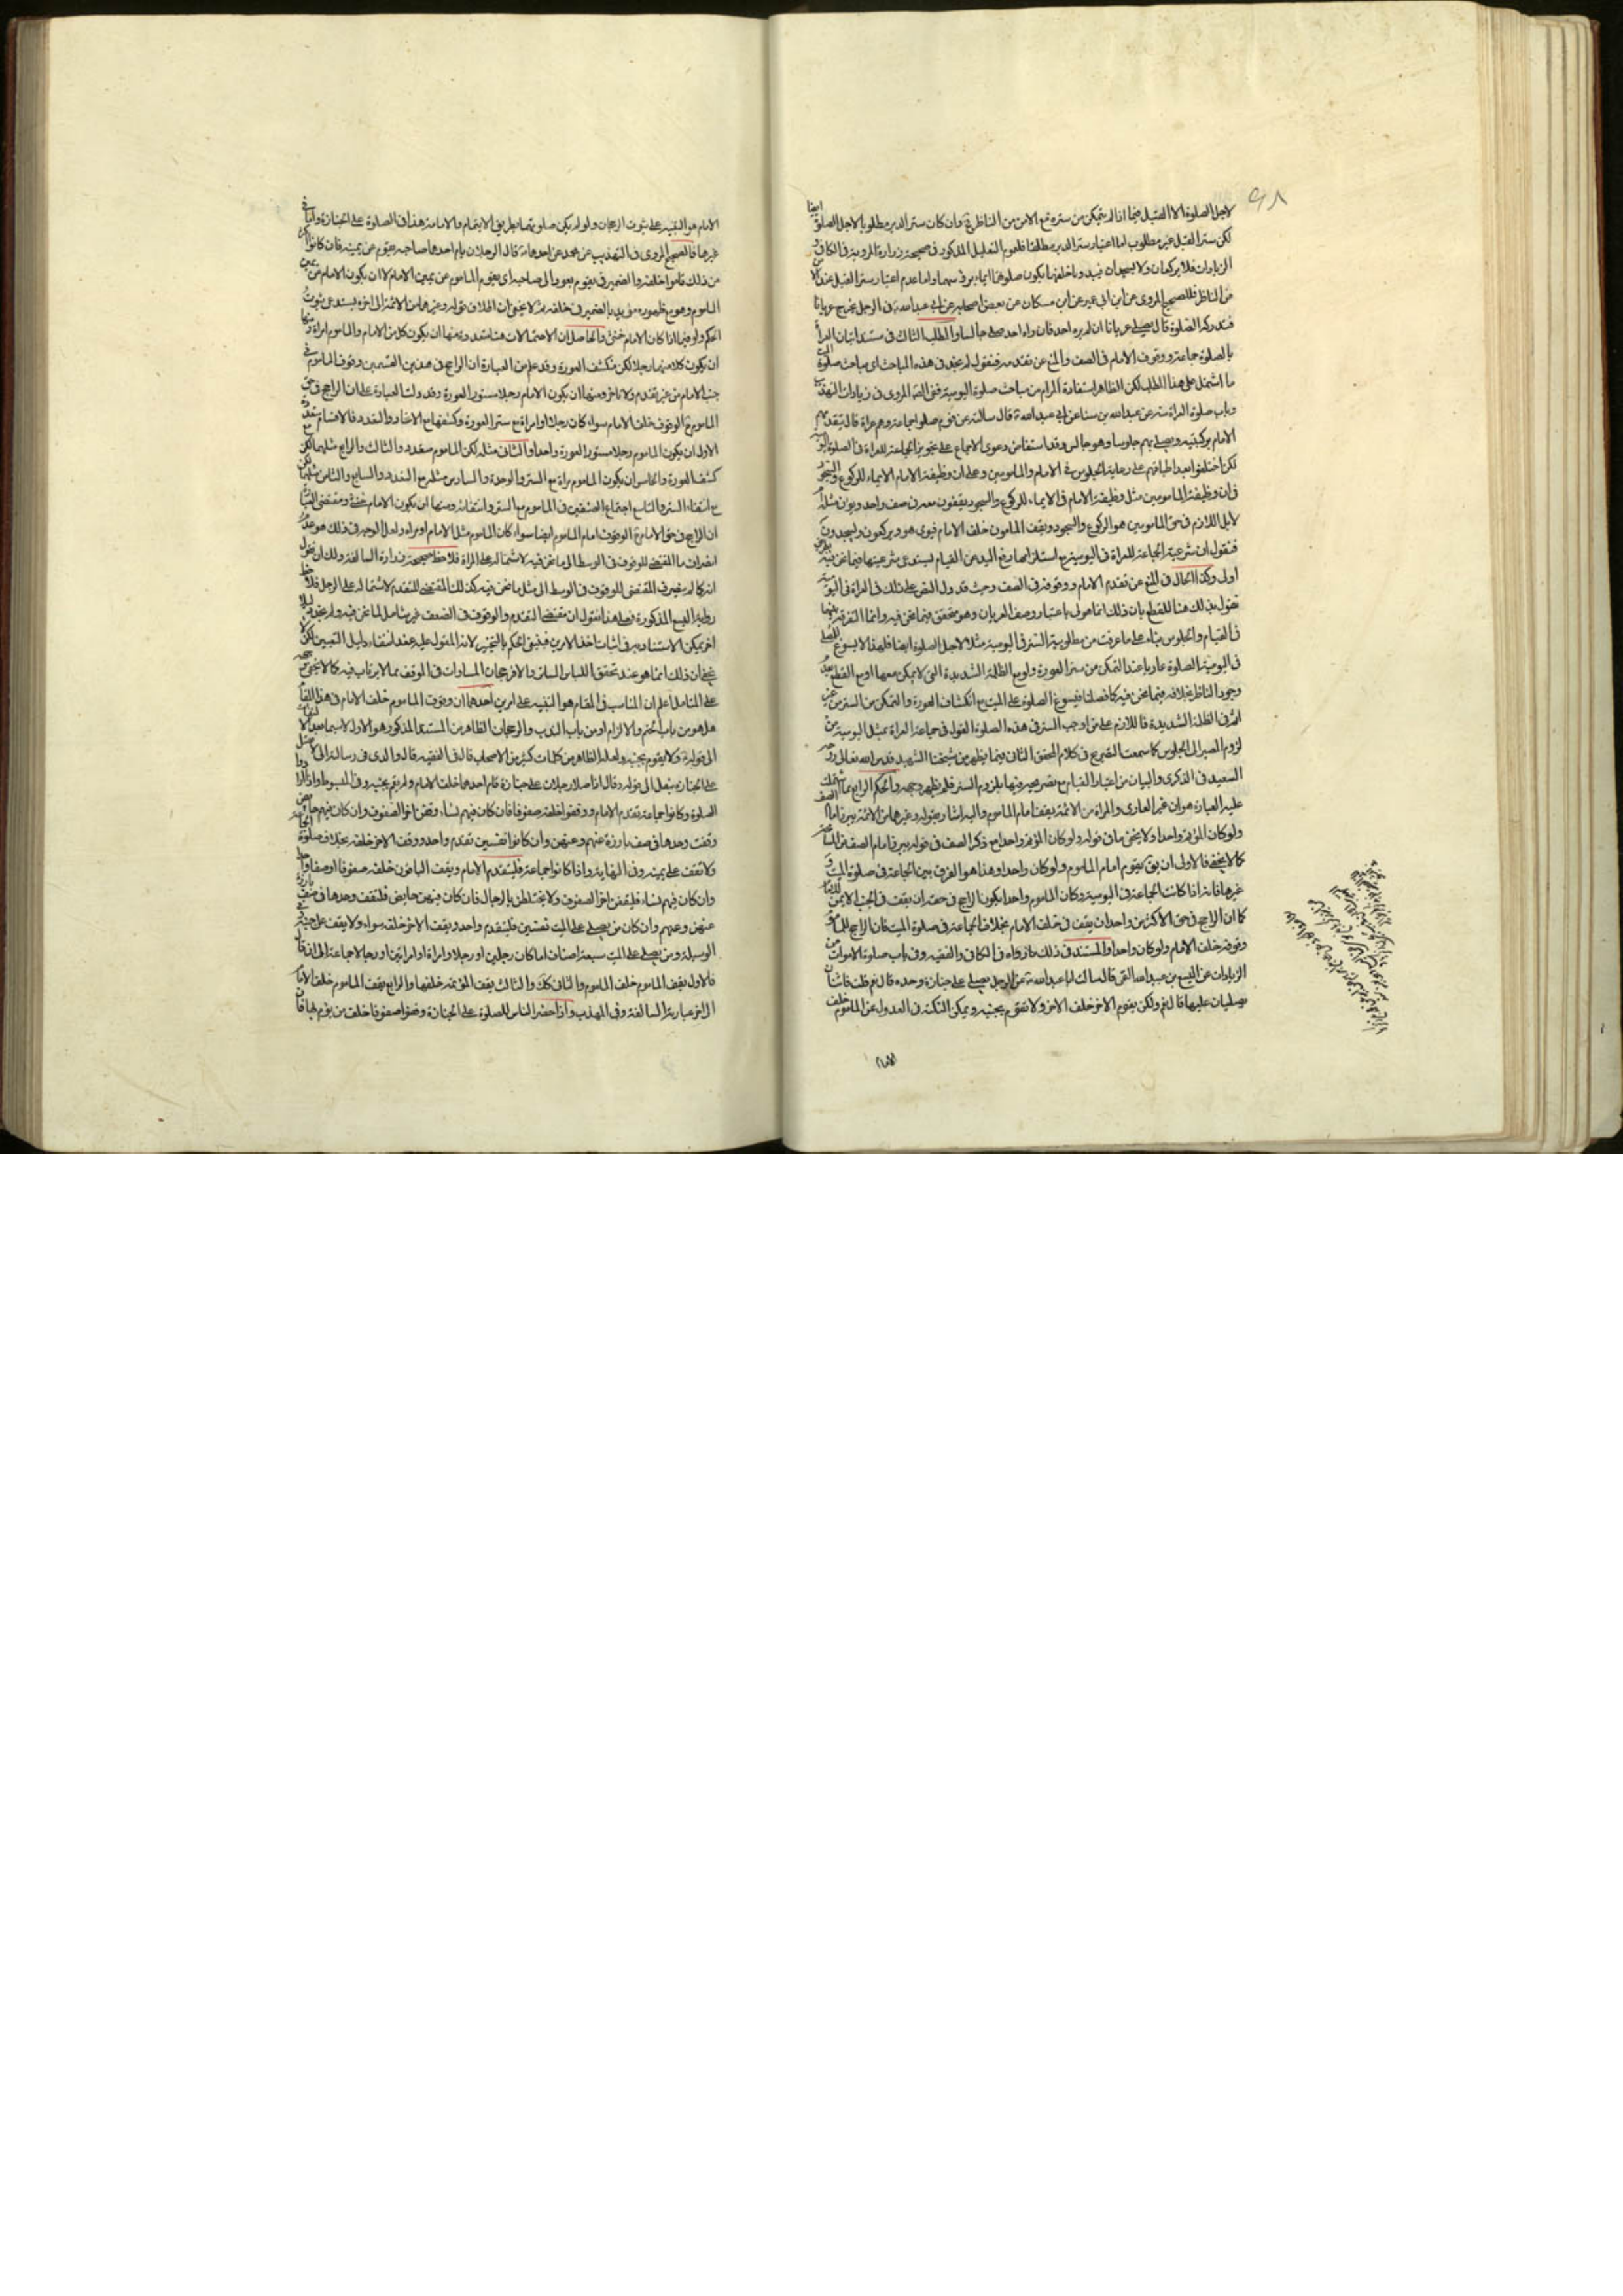 لاجل الصلوة الا القبل فيما اذا لم يتمكن من ستره مع الامن من الناظر وان كان ستر الدبر مطلوبا لاجل الصلوة ايضا
لكن ستر القبل غير مطلوب اما اعتبار ستر الدبر مطلقا فلعموم التعليل المذكور في صحيحة زرارة المروية في الكافي و
الزيادات فلا يركعان ولا يسجدان فيبدو ما خلفهما يكون صلوتهما ايماء برؤسهما واما عدم اعتبار ستر القبل عند الا
من الناظر فللصحيح المروي عن ابن ابي عمير عن ابن مسكان عن بعض اصحابه عن ابي عبد الله في الرجل يخرج عريانا
فتدركه الصلوة قال يصلي عريانا ان لم يره احد فان راه احد صلى جالسا والمطلب الثالث في مستند اتيان العراة
بالصلوة جماعة ووقوف الامام في الصف والمنع عن تقدمه فنقول لم نجد في هذه المباحث اي مباحث صلوة
ما اشتمل على هذا المطلب لكن الظاهر استفادة المرام من مباحث صلوة اليومية ففي المروي في زيادات التهذيب
وباب صلوة العراة منه عن عبد الله بن سنان عن ابي عبد الله قال سالته عن قوم صلوا جماعة وهم عراة قال يتقدمهم
الامام بركبتيه ويصلي بهم جلوسا وهو جالس وقد استفاض دعوى الاجماع على تجويز الجماعة للعراة في الصلوة
لكن اختلفوا بعد اطباقهم على رعاية الجلوس في الامام والمامومين وعلى ان وظيفة الامام الايماء للركوع والسجود
في ان وظيفة المامومين مثل وظيفة الامام في الايماء للركوع والسجود
لا بل اللازم في حق المامومين هو الركوع والسجود ويقف المامون خلف الامام فيومي هو ويركعون ويسجدون
فنقول ان شرعية الجماعة للعراة في اليومية مع استلزامها رفع اليد عن القيام يستدعي شرعيتها فيما نحن فيه
اولى وكذا الحال في المنع عن تقدم الامام ووقوفه في الصف وحيث قد دل النص على ذلك في العراة في اليومية
نقول بذلك هنا للقطع بان ذلك انما هو باعتبار وصف العريان وهو متحقق فيما نحن فيه وانما التفرقة بينهما
في القيام والجلوس بناء على ما عرفت من مطلوبية الستر في اليومية مثلا لاجل الصلوة ايضا فلهذا لا يسوغ للمصلي
في اليومية الصلوة عاريا عند التمكن من ستر العورة ولو مع الظلمة الشديدة التي لا يمكن معها او مع القطع بعدم
وجود الناظر بخلافه فيما نحن فيه كما فصلنا فيسوغ الصلوة على الميت مع انكشاف العورة والتمكن من الستر
في الظلمة الشديدة فاللازم على من اوجب الستر في هذه الصلوة القول في جماعة العراة بمثل اليومية من
لزوم المصير الى الجلوس كما سمعت التصريح في كلام المحقق الثاني فما يظهر من شيخنا الشهيد قدس الله تعالى روحه
السعيد في الذكرى والبيان من اعتبار القيام مع تصريحه فيهما بلزوم الستر فلم يظهر وجهه والحكم الرابع مما اشتملت
عليه العبارة هو ان غير العاري والمراة من الائمة يقف امام الماموم واليه اشار بقوله وغيرهما من الائمة يبرز امام الصف
ولو كان المؤتم واحدا ولا يخفى ما في قوله ولو كان المؤتم واحدا مع ذكر الصف في قوله يبرز امام الصف من المسامحة
كما لا يخفى فالاولى ان يق يقوم امام الماموم ولو كان واحدا وهذا هو الفرق بين الجماعة في صلوة الميت و
غيرها فانه اذا كانت الجماعة في اليومية وكان الماموم واحدا يكون الراجح في حقه ان يقف في الجنب الايمن
كما ان الراجح في حق الاكثر من واحد ان يقف في خلف الامام بخلاف الجماعة في صلوة الميت فان الراجح للماموم
وقوفه خلف الامام ولو كان واحدا والمستند في ذلك ما رواه في الكافي والفقيه وفي باب صلوة الاموات من
الزيادات عن اليسع بن عبد الله القمي قال سالت ابا عبد الله عن الرجل يصلي على جنازة وحده قال نعم قلت فاثنان
يصليان عليها قال نعم ولكن يقوم الاخر خلف الاخر ولا يقوم بجنبه ويمكن النكتة في العدول عن الماموم خلف
الامام
الامام هو التنبيه على ثبوت الرجحان ولو لم يكن صلوتهما بطريق الايتمام والامامة هذا في الصلوة على الجنازة واما في
غيرها فالصحيح المروي في التهذيب عن محمد عن احدهما قال الرجلان يؤم احدهما صاحبه يقوم عن يمينه فان كانوا اكثر
من ذلك قاموا خلفه والضمير في يقوم يعود الى صاحبه اي يقوم الماموم عن يمين الامام لا ان يكون الامام من يمين
الماموم وهو مع ظهوره مؤيد بالضمير في خلفه ثم لا يخفى ان اطلاق قوله وغيرهما من الائمة الى اخره يستدعي ثبوت
الحكم ولو فيما اذا كان الامام خنثى والحاصل ان الاحتمالات هنا متعددة منها ان يكون كل من الامام والماموم امراة ومنها
ان يكون كلاهما رجلا لكن منكشف العورة وقد علم من العبارة ان الراجح في هذين القسمين وقوف الماموم في
جنب الامام من غير تقدم ولا تاخر ومنها ان يكون الامام رجلا مستور العورة وقد دلت العبارة على ان الراجح في حق
الماموم ح الوقوف خلف الامام سواء كان رجلا او امراة مع ستر العورة وكشفها مع الاتحاد والتعدد فالاقسام متعددة
الاول ان يكون الماموم رجلا مستور العورة واحدا والثاني مثله لكن الماموم متعدد والثالث والرابع مثلهما لكن مع
كشف العورة والخامس ان يكون الماموم مراة مع الستر والوحدة والسادس مثله مع التعدد والسابع والثامن مثلهما لكن
مع انتفاء الستر والتاسع اجتماع الصنفين في الماموم مع الستر وانتفائه ومنها ان يكون الامام خنثى ومقتضى العبارة
ان الراجح في حق الامام ح الوقوف امام الماموم ايضا سواء كان الماموم مثل الامام او مراة ولعل الوجه في ذلك هو عدم
انصراف ما المقتضي للوقوف في الوسط الى ما نحن فيه لاشتماله على المراة فلاحظ صحيحة زرارة السالفة ولك ان تقول
انه كما لم ينصرف المقتضي للوقوف في الوسط الى مثل ما نحن فيه كذلك المقتضي للتقدم لاشتماله على الرجل فلاحظ
رواية اليسع المذكورة وعلى هذا نقول ان مقتضى التقدم والوقوف في الصف غير شامل لما نحن فيه ولم نجد دليلا
اخر يمكن الاستناد به في اثبات احد الامرين فينبغي الحكم بالتخيير لانه المعول عليه عند انتفاء دليل التعيين لكن لا
يخفى ان ذلك انما هو عند تحقق اللباس الساتر والا فرجحان المساوات في الموقف مما لا يرتاب فيه كما لا يخفى وجهه
على المتامل اعلم ان المناسب في المقام هو التنبيه على امرين احدهما ان وقوف الماموم خلف الامام في هذا المقام
هل هو من باب الحتم والالزام او من باب الندب والرجحان الظاهر من المستند المذكور هو الاول لاسيما بعد الالتفات
الى قوله ولا يقوم بجنبه ولعله الظاهر من كلمات كثير من الاصحاب قال في الفقيه قال والدي في رسالته الى لا تصل
على الجنازة بنعل الى قوله وقال اذا صلى رجلان على جنازة قام احدهما خلف الامام ولم يقم بجنبه وفي المبسوط واذا ارادوا
الصلوة وكانوا جماعة تقدم الامام ووقفوا خلفه صفوفا فان كان فيهم نساء وقفن اخر الصفوف وان كان فيهم حائض
وقفت وحدها في صف بارزة عنهم وعنهن وان كانوا نفسين تقدم واحد ووقف الاخر خلفه بخلاف صلوة الجماعة
ولا يقف على يمينه وفي النهاية واذا كانوا جماعة فليتقدم الامام ويقف الباقون خلفه صفوفا او صفا واحدا
وان كان فيهم نساء فليقفن اخر الصفوف ولا يختلطن بالرجال فان كان فيهن حايض فلتقف وحدها في صف بارزة
عنهن وعنهم وان كان من يصلي على الميت نفسين فليتقدم واحد ويقف الاخر خلفه سواء ولا يقف على جنبه وفي
الوسيلة ومن يصلي على الميت سبعة اصناف اما كان رجلين او رجلا وامراة او امراتين او رجالا جماعة الى ان قال
فالاول يقف الماموم خلف الماموم والثاني كك والثالث يقف المؤتمة خلفها والرابع يقف الماموم خلف الامام
الى اخر عبارته السالفة وفي المهذب واذا حضر الناس للصلوة على الجنازة وقفوا صفوفا خلف من يؤم بها فان